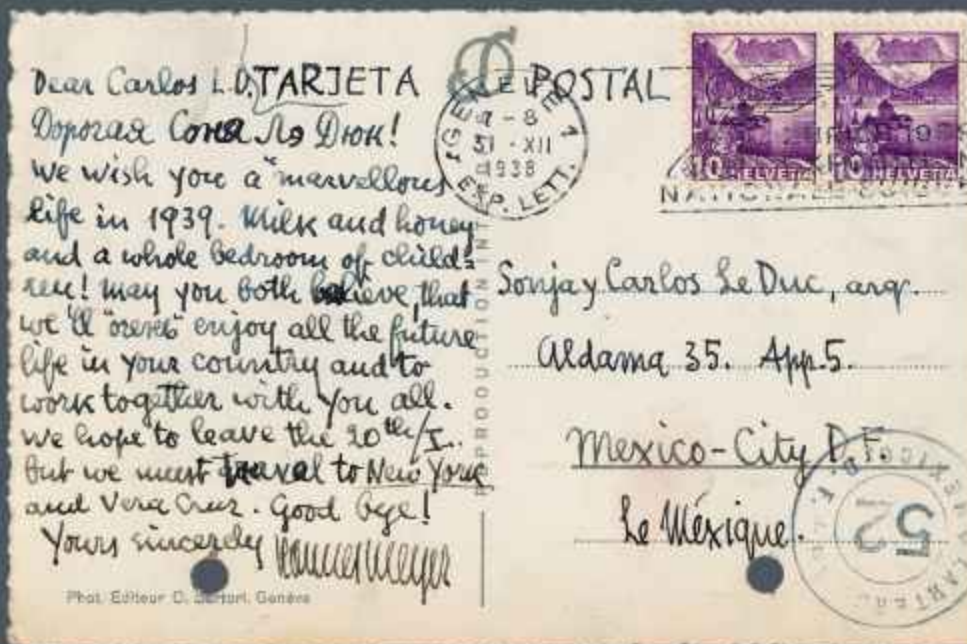 Dear Carlos L.D. TARJETA POSTAL
Дорогая Соня Лэ Дюк!
we wish you a "marvellous
life in 1939. Milk and honey
and a whole bedroom of child=
ren! may you both believe, that
we'll "очень" enjoy all the future
life in your country and to
work together with you all.
we hope to leave the 20th/I.
but we must travel to New York
and Vera Cruz. Good bye!
Yours sincerely hannes meyer
Phot. Editeur Genève
1
7-8
31.XII
1938
EXP. LETT.
10 HELVETIA
10 HELVETIA
Sonja y Carlos Le Duc, arq.
Aldama 35. App. 5.
Mexico-City D.F.
Le Méxique.
52